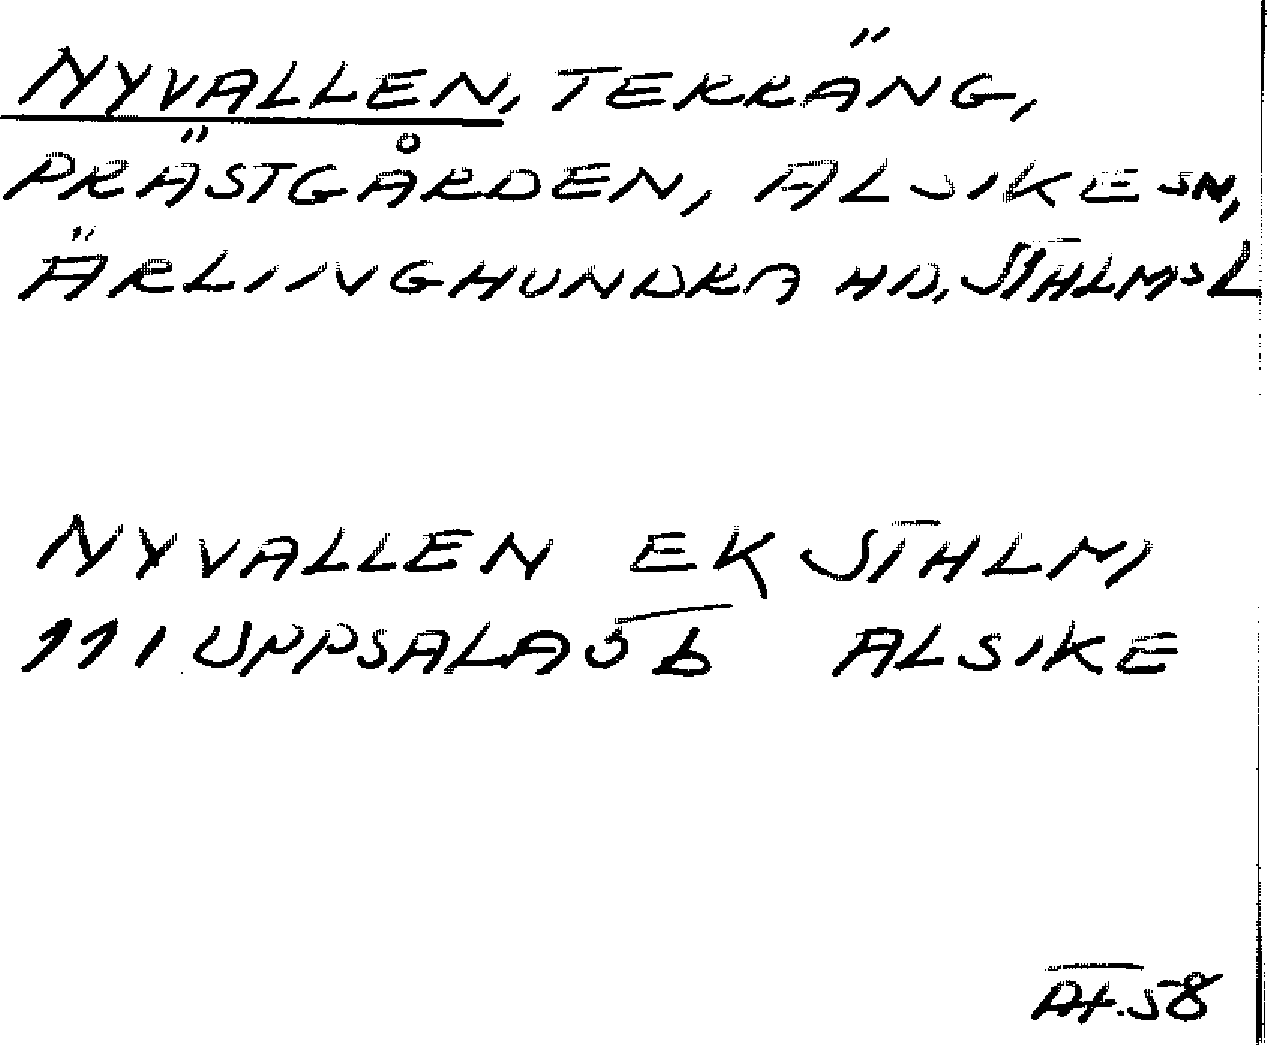 NYVALLEN, TERRÄNG,
PRÄSTGÅRDEN, ALSIKE SN,
ÄRLINGHUNDRA HD, STHLMS L
NYVALLEN EK STHLM
111 UPPSALA 5 b ALSIKE
58